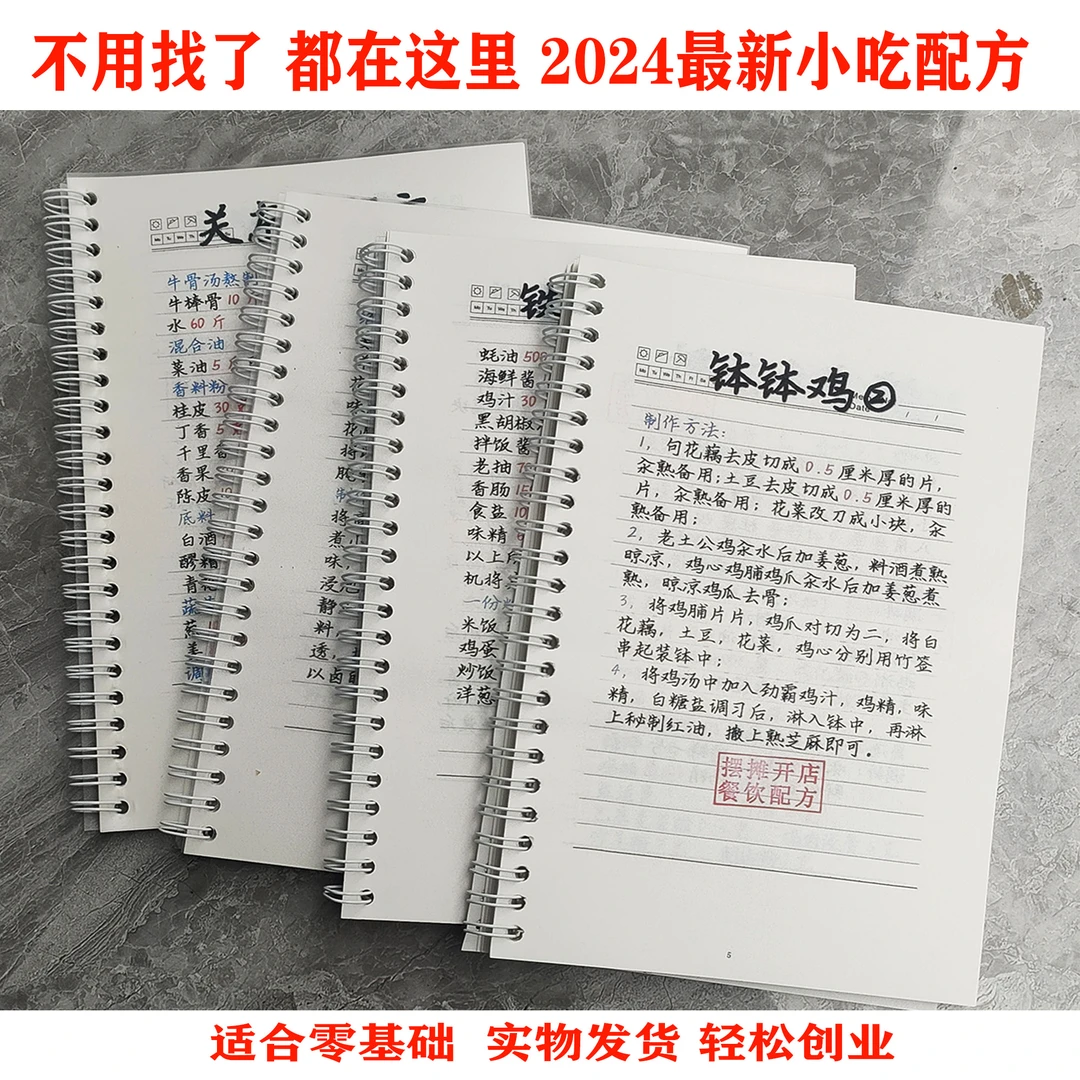 不用找了 都在这里 2024最新小吃配方
关
牛骨汤熬制
牛棒骨 10
水 60 斤
混合油
菜油 5 斤
香料粉
桂皮 30
丁香 5
千里香
香果
陈皮
底料
白酒
醪糟
青花
蔬
蕉
姜
调
花
味
花
将
脆
制
将
煮
味，
浸泡
静
料
透，
以卤
铁
蚝油 500
海鲜酱
鸡汁 30
黑胡椒
拌饭酱
老抽
香肠 15
食盐 10
味精
以上
机将
一份
米饭
鸡蛋
炒饭
洋葱
钵钵鸡②
制作方法：
1，句花藕去皮切成0.5厘米厚的片，
汆熟备用；土豆去皮切成0.5厘米厚的
片，汆熟备用；花菜改刀成小块，汆
熟备用；
2，老土公鸡汆水后加姜葱，料酒煮熟
晾凉，鸡心鸡脯鸡爪汆水后加姜葱煮
熟，晾凉鸡瓜去骨；
3，将鸡脯片片，鸡爪对切为二，将白
花藕，土豆，花菜，鸡心分别用竹签
串起装钵中；
4，将鸡汤中加入劲霸鸡汁，鸡精，味
精，白糖盐调习后，淋入钵中，再淋
上秘制红油，撒上熟芝麻即可。
摆摊开店
餐饮配方
5
适合零基础 实物发货 轻松创业